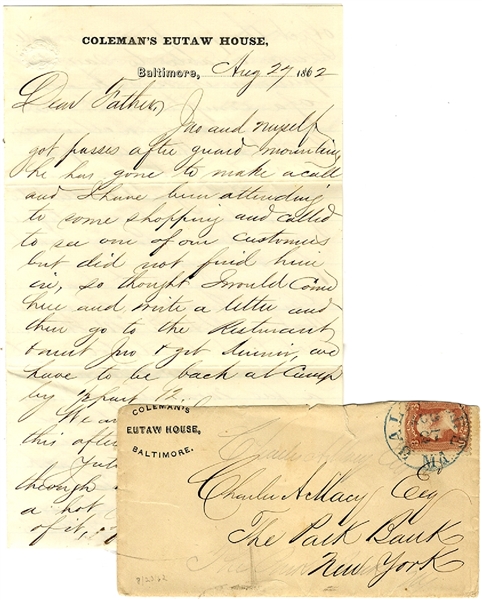 COLEMAN'S EUTAW HOUSE,
Baltimore, Aug 27 1862
Dear Father,
Jno and myself
got passes after guard mounting
he has gone to make a call
and I have been attending
to some shopping and called
to see one of our customers
but did not find him
in, so thought I would come
here and write a letter and
then go to the Restaurant
& meet Jno & get dinner, we
have to be back at Camp
by ½ past 12.
We
this after
through
a hot
of it,
COLEMAN'S
EUTAW HOUSE,
BALTIMORE.
Charles A Macy Esq
The Park Bank
New York